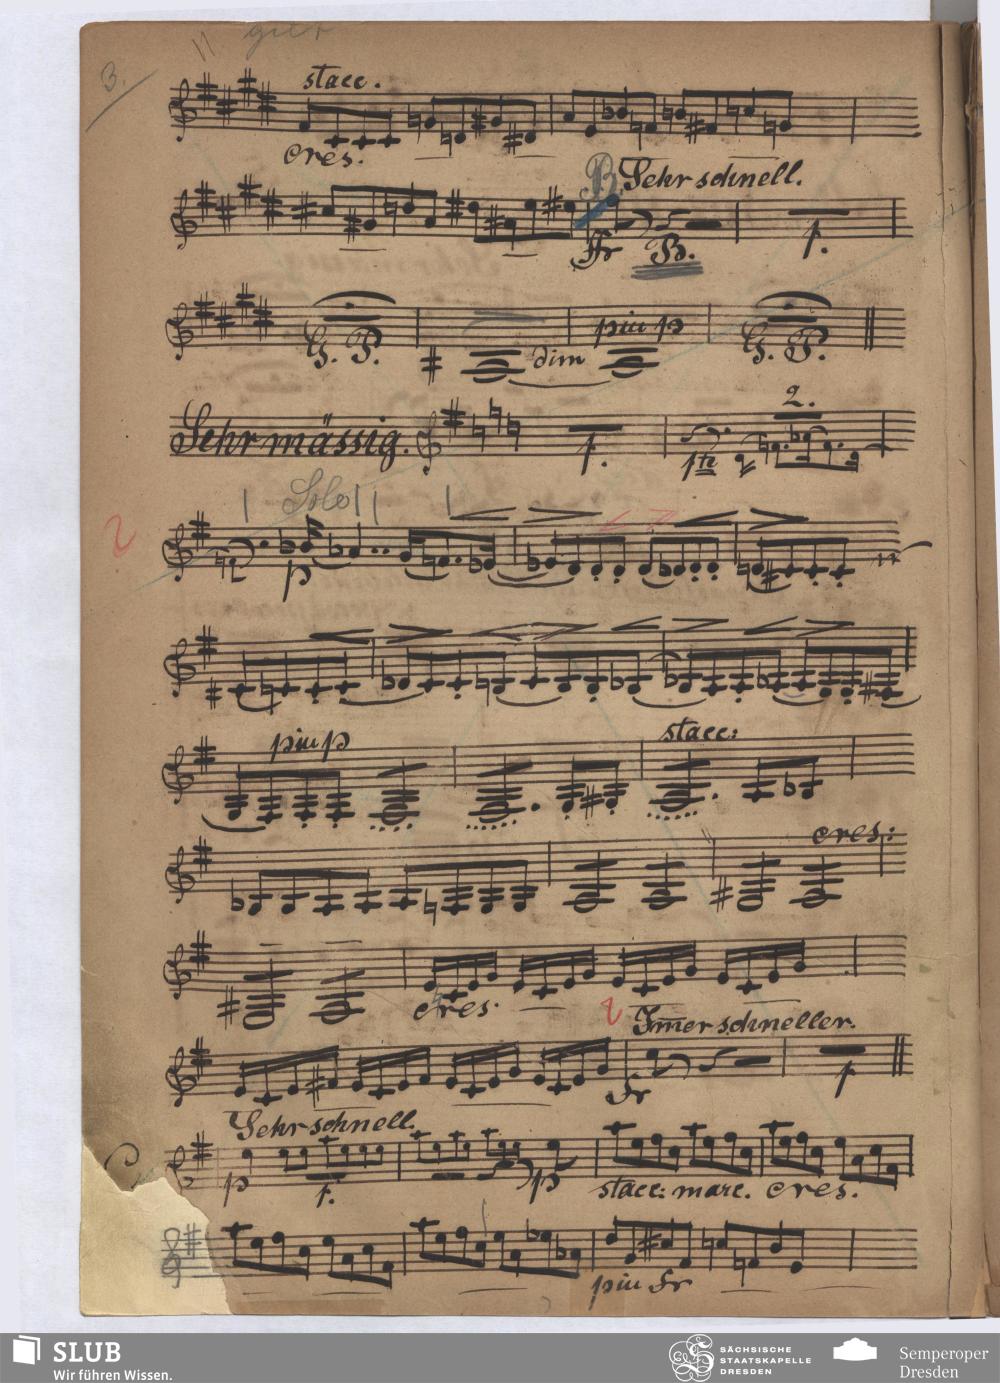 3.
stacc.
cres.
B Sehr schnell.
fr B.
p.
G. P. dim piu p G. P.
Sehr mässig. p. 2.
pte
Solo
p
piu p stacc:
cres:
cres.
Immer schneller.
fr p
Sehr schnell.
p p. p stacc: marc. cres.
piu fr
SLUB
Wir führen Wissen.
SÄCHSISCHE
STAATSKAPELLE
DRESDEN
Semperoper
Dresden